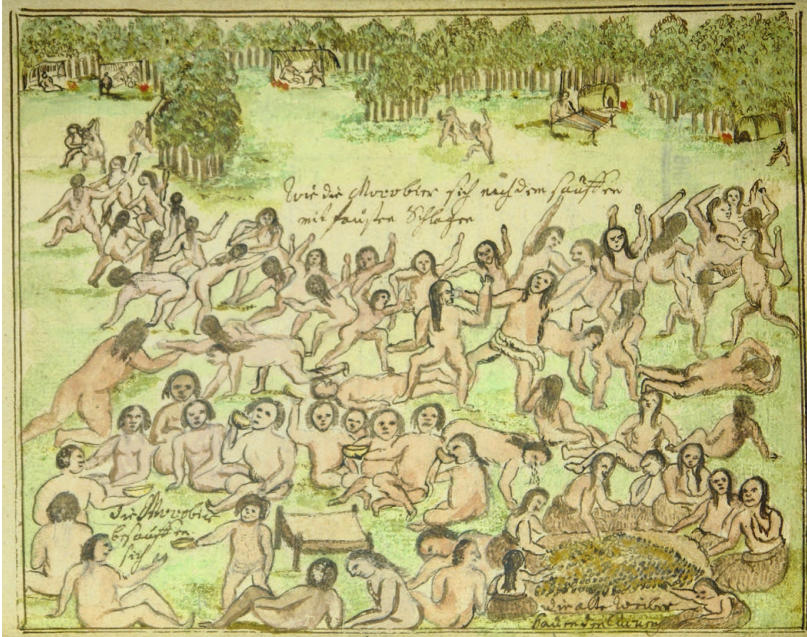 Wie die Mocobier sich nach dem sauffen
mit fausten Schlagen
die Mocobier
besauffen
sich
die alte weiber